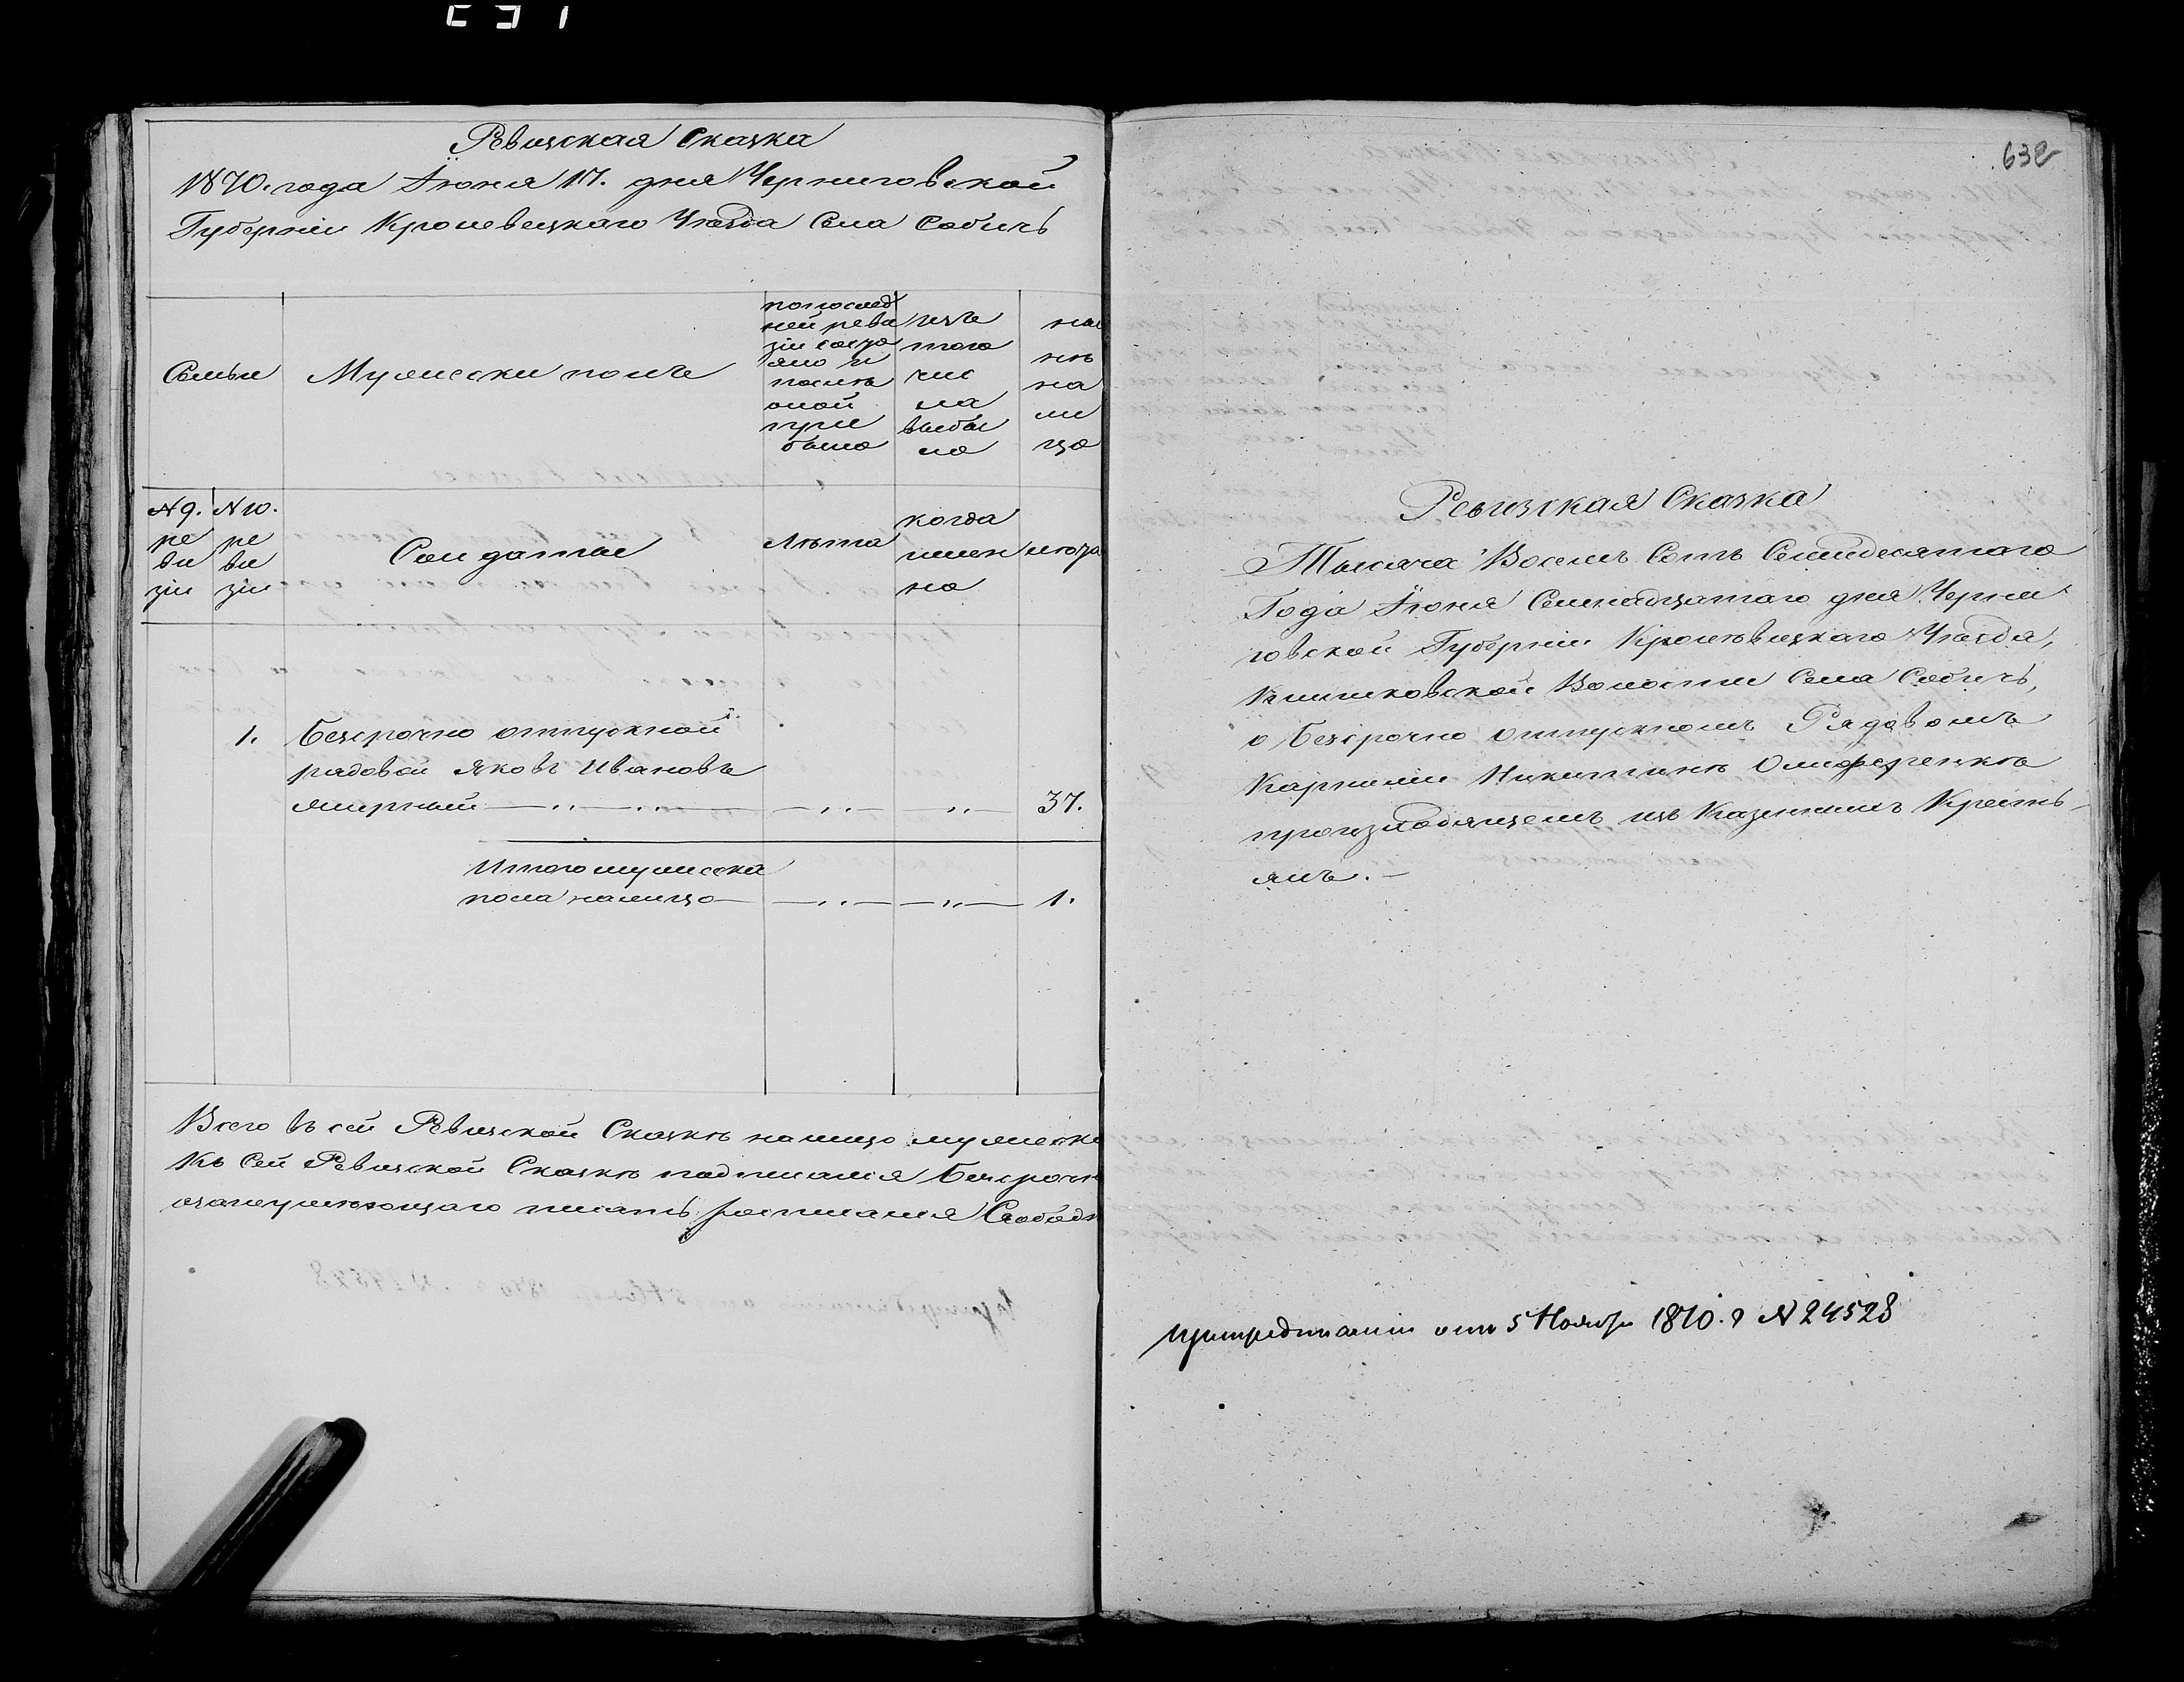 Ревизская Сказка
1870. года Іюня 17. дня Черниговской
Губерніи Кролевецкаго Уѣзда Села Собичъ
Семьи
Мужески полъ
по послед
ней реви
зіи состо
яло и
послѣ
оной
при
было
изъ
того
чис
ла
выбы
ло
ны
нѣ
на
ли
цо
N 9.
ре
ви
зіи
N 10.
ре
ви
зіи
Солдаты
Лѣта
когда
имен
но
лѣта
1. Безсрочно отпускной
рядовой Яковъ Ивановъ
Жирный — „ — „ — 37.
Итого мужеска
пола налицо — „ — „ — 1.
Всего въ сей Ревизской Сказкѣ налицо мужеска
Къ Сей Ревизской Сказкѣ подписался Безсрочн
писать росписался
632
Ревизская Сказка
Тысяча Восемь Сотъ Семидесятаго
Года Іюня Семнадцатаго дня Черни
говской Губерніи Кролевецкаго Уѣзда,
Клишковской Волости Села Собичъ,
о безсрочно отпускномъ Рядовомъ
Карпѣ Никитинѣ Олиференкѣ
произходящемъ изъ Казенныхъ Кресть-
янъ. —
при предписаніи отъ 5 Ноября 1870. г N 24528